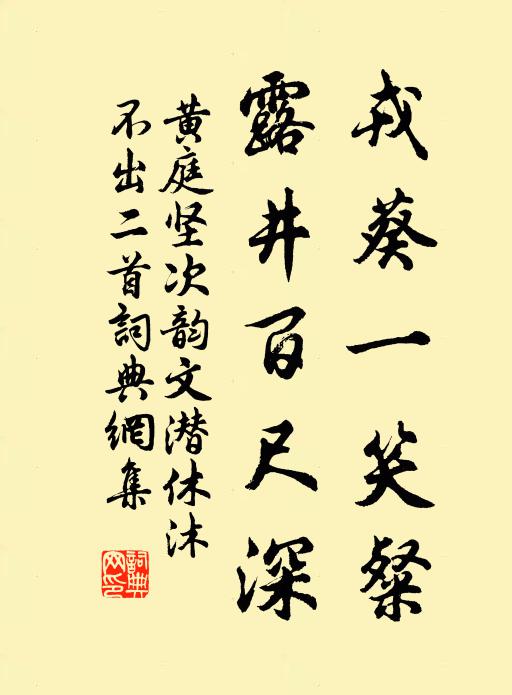 戎葵一笑粲
露井百尺深
黄庭坚次韵文潜休沐
不出二首詞典網集
詞典網印